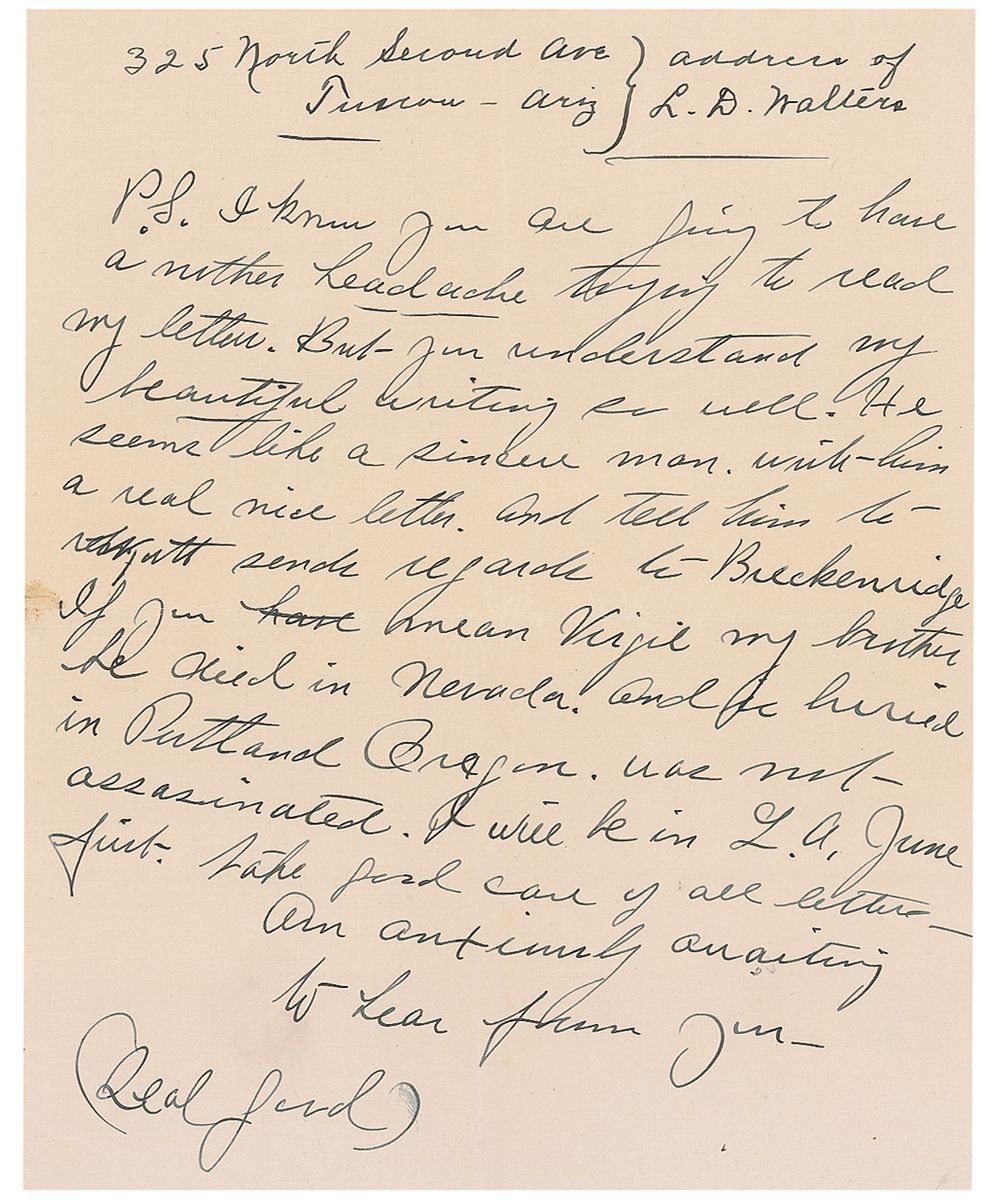 325 North Second Ave } address of
Tuscon - Ariz } L. D. Walters
P.S. I know you are going to have
a nother headache trying to read
my letter. But you understand my
beautiful writing so well. He
seems like a sincere man. write him
a real nice letter. and tell him to
send regards to Breckenridge
If you have mean Virgil my brother
he died in Nevada. and is buried
in Portland Oregon. was not
assasinated. I will be in L.A. June
first. take good care of all letters
Am anxiously awaiting
to hear from you
(Real good)